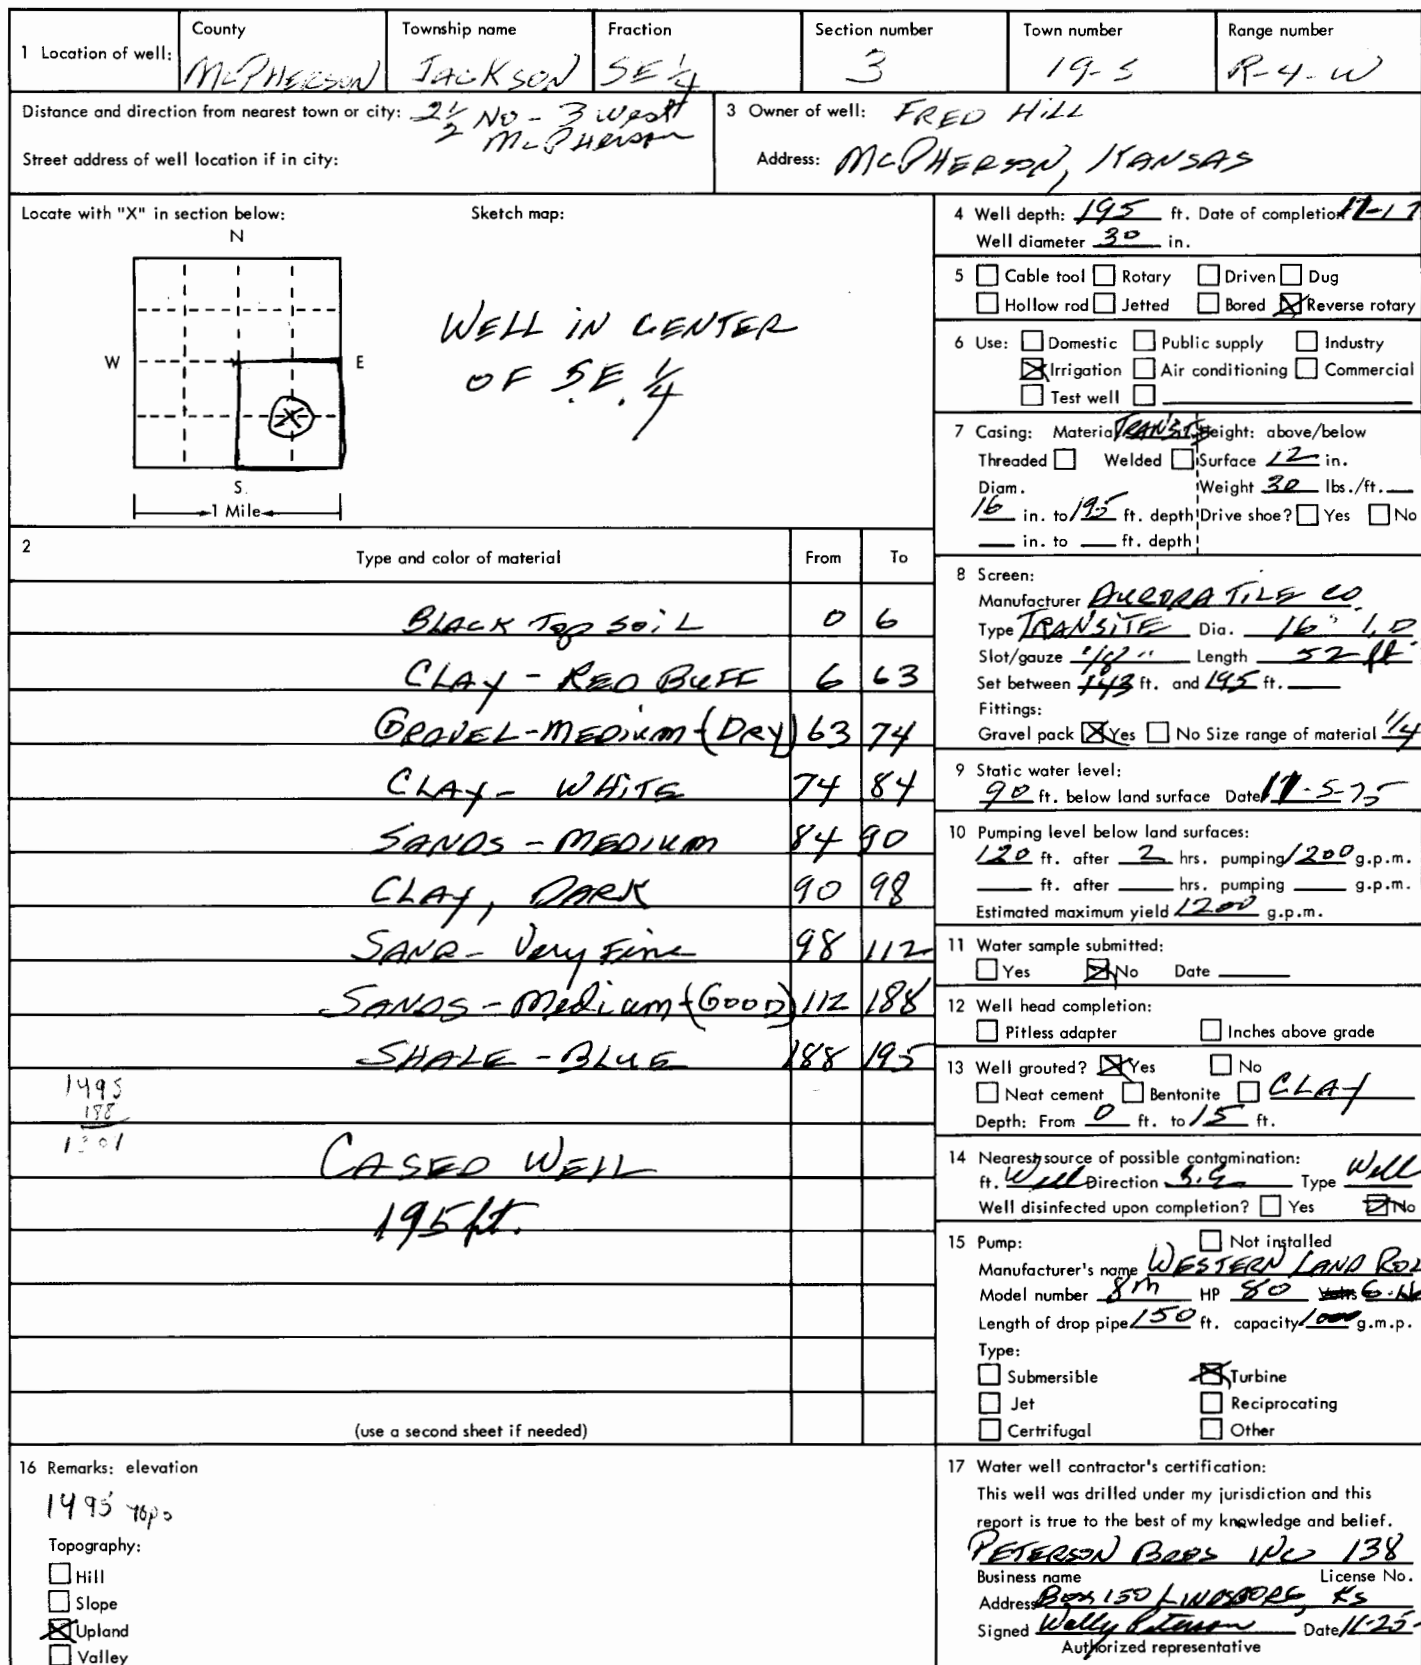 1 Location of well: County Township name Fraction Section number Town number Range number
McPHERSON JACKSON SE 1/4 3 19-S R-4-W
Distance and direction from nearest town or city: 2 1/2 No - 3 West
McPherson
Street address of well location if in city:
3 Owner of well: FRED HILL
Address: McPHERSON, KANSAS
Locate with "X" in section below: Sketch map:
N
W E
S
1 Mile
X
WELL IN CENTER
OF S.E. 1/4
2 Type and color of material From To
BLACK TOP SOIL 0 6
CLAY - RED BUFF 6 63
GRAVEL - MEDIUM - (DRY) 63 74
CLAY - WHITE 74 84
SANDS - MEDIUM 84 90
CLAY, DARK 90 98
SAND - Very Fine 98 112
SANDS - Medium - (GOOD) 112 188
SHALE - BLUE 188 195
1495
188
CASED WELL
195 ft.
(use a second sheet if needed)
4 Well depth: 195 ft. Date of completion
Well diameter 30 in.
5 Cable tool Rotary Driven Dug
Hollow rod Jetted Bored X Reverse rotary
6 Use: Domestic Public supply Industry
X Irrigation Air conditioning Commercial
Test well
7 Casing: Material TRANSITE Height: above/below
Threaded Welded Surface 12 in.
Diam. Weight 30 lbs./ft.
16 in. to 195 ft. depth Drive shoe? Yes No
in. to ft. depth
8 Screen:
Manufacturer AURORA TILE CO
Type TRANSITE Dia. 16" I.D
Slot/gauze 1/8" Length 52 ft
Set between 143 ft. and 195 ft.
Fittings:
Gravel pack X Yes No Size range of material 1/4
9 Static water level:
90 ft. below land surface Date 11-5-75
10 Pumping level below land surfaces:
120 ft. after 2 hrs. pumping 1200 g.p.m.
ft. after hrs. pumping g.p.m.
Estimated maximum yield 1200 g.p.m.
11 Water sample submitted:
Yes X No Date
12 Well head completion:
Pitless adapter Inches above grade
13 Well grouted? X Yes No
Neat cement Bentonite CLAY
Depth: From 0 ft. to 15 ft.
14 Nearest source of possible contamination:
ft. Well Direction Type Well
Well disinfected upon completion? Yes X No
15 Pump: Not installed
Manufacturer's name WESTERN LAND ROL
Model number 8M HP 80 Volts
Length of drop pipe 150 ft. capacity 1000 g.m.p.
Type:
Submersible X Turbine
Jet Reciprocating
Certrifugal Other
16 Remarks: elevation
1495 Topo
Topography:
Hill
Slope
X Upland
Valley
17 Water well contractor's certification:
This well was drilled under my jurisdiction and this
report is true to the best of my knowledge and belief.
PETERSON BROS INC 138
Business name License No.
Address Box 150 LINDSBORG, KS
Signed Wally Peterson Date 11-25-
Authorized representative